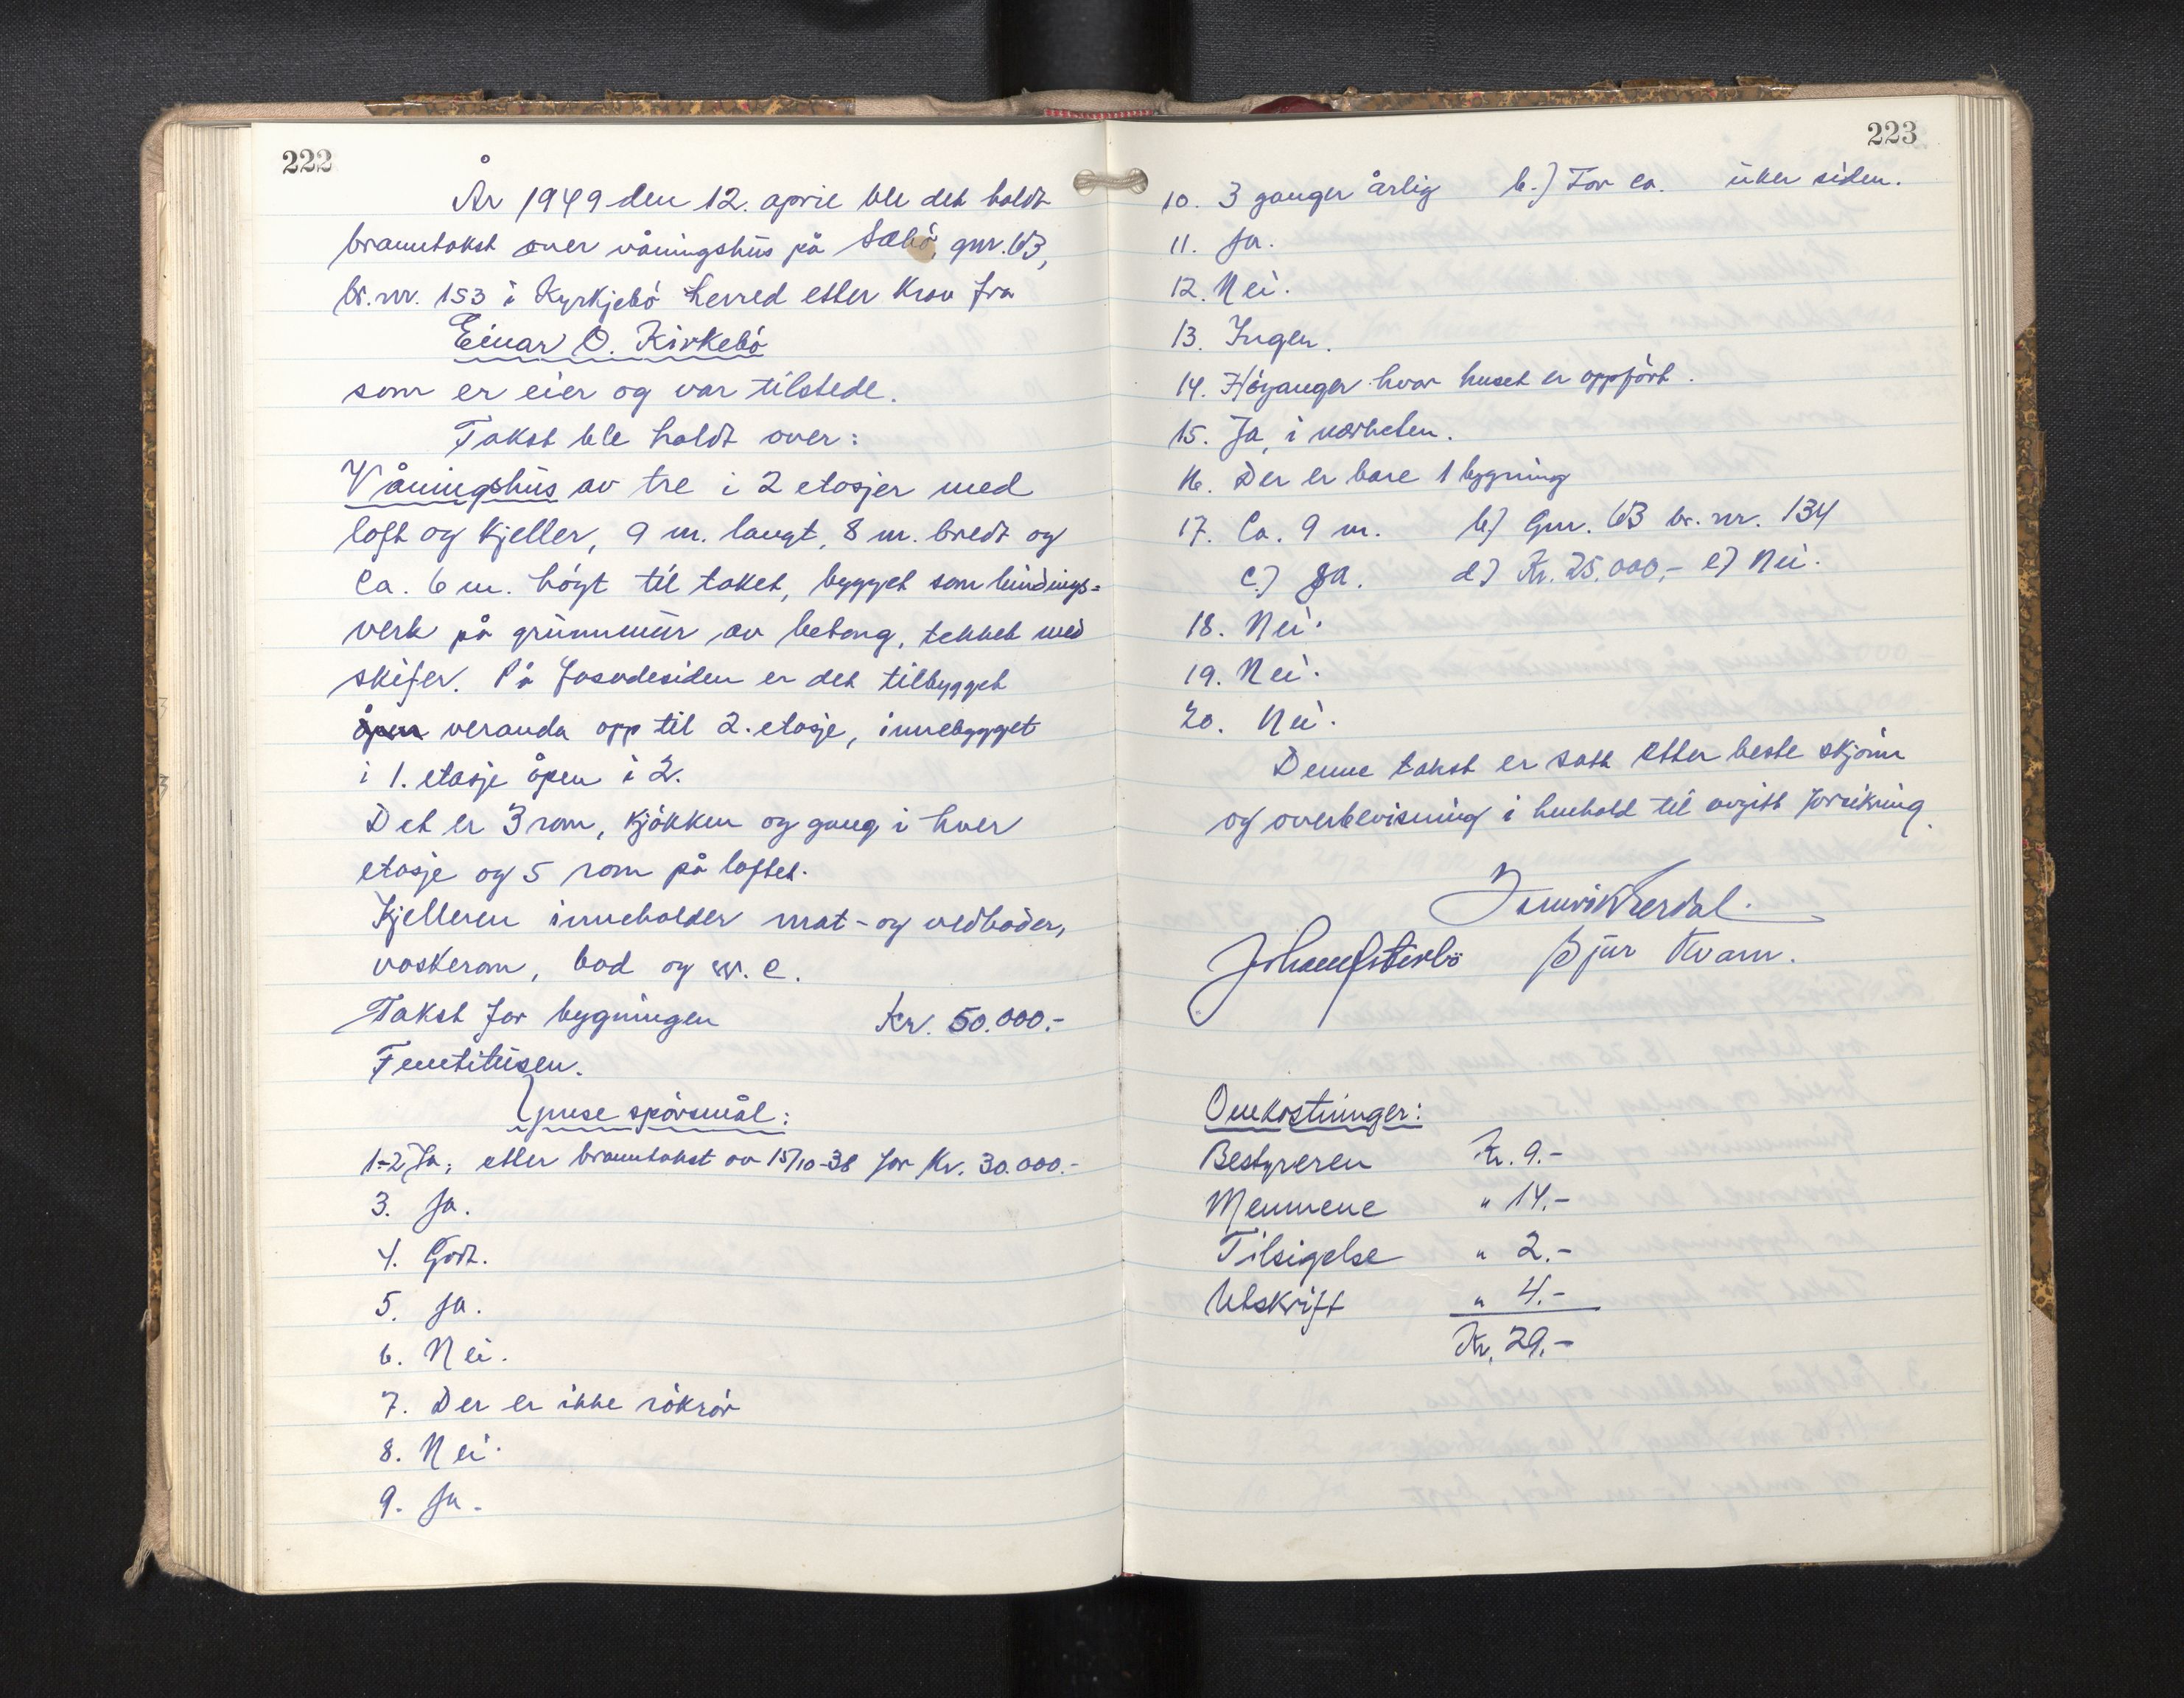 222
År 1949 den 12. april ble det holdt
branntakst over våningshus på Sæbö, gnr. 63,
br.nr. 153 i Kyrkjebö herred etter krav fra
Einar O. Kirkebö
som er eier og var tilstede.
Takst ble holdt over:
Våningshus av tre i 2 etasjer med
loft og kjeller, 9 m. langt, 8 m. bredt og
ca. 6 m. höyt til taket, bygget som bindings-
verk på grunnmur av betong, tekket med
skifer. På fasadesiden er det tilbygget
åpen veranda opp til 2. etasje, innebygget
i 1. etasje åpen i 2.
Det er 3 rom, kjökken og gang i hver
etasje og 5 rom på loftet.
Kjelleren inneholder mat- og vedboder,
vaskerom, bad og w.c.
Takst for bygningen Kr. 50.000.-
Femtitusen.
spörsmål:
1-2 Ja, etter branntakst av 15/10-38 for Kr. 30.000.-
3. Ja.
4. Godt.
5. Ja.
6. Nei.
7. Der er ikke rökrör
8. Nei.
9. Ja.
223
10. 3 ganger årlig b.) For ca. uker siden.
11. Ja.
12. Nei.
13. Ingen.
14. Höyanger hvor huset er oppfört.
15. Ja, i nærheten.
16. Der er bare 1 bygning
17. Ca. 9 m. b) Gnr. 63 br.nr. 134
c.) Ja. d) Kr. 25.000,- e) Nei.
18. Nei.
19. Nei.
20. Nei.
Denne takst er satt etter beste skjönn
og overbevisning i henhold til avgitt forsikring.
Kvam.
Omkostninger:
Bestyreren Kr. 9.-
Mennene " 14.-
Tilsigelse " 2.-
Utskrift " 4.-
Kr. 29.-